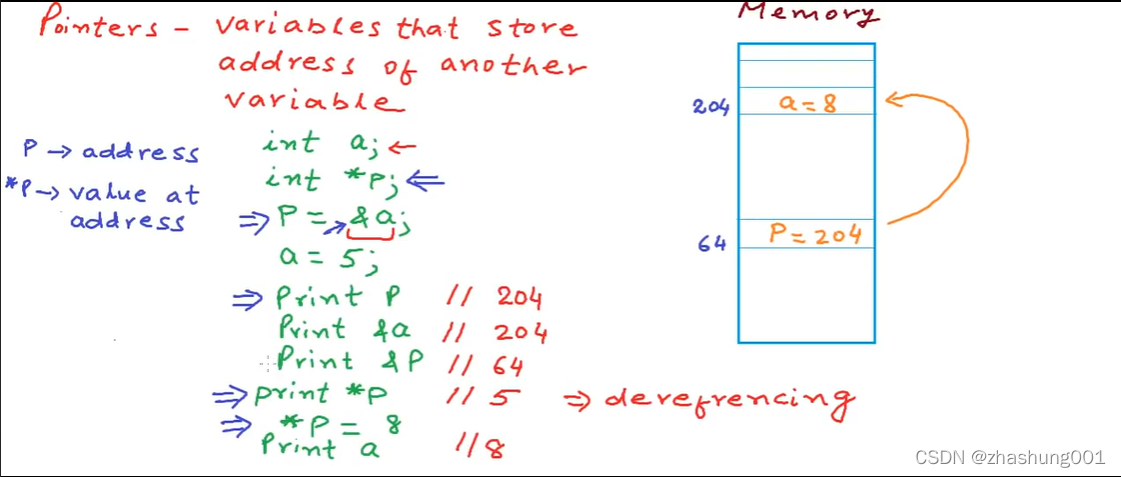 Pointers - variables that store
address of another
variable
P → address
*P → value at
address
int a; ←
int *P; ⇐
⇒ P = → &a;
a = 5;
⇒ Print P // 204
Print &a // 204
Print &P // 64
⇒ print *P // 5 ⇒ derefrencing
⇒ *P = 8
Print a // 8
Memory
204 a = 8
64 P = 204
CSDN @zhashung001